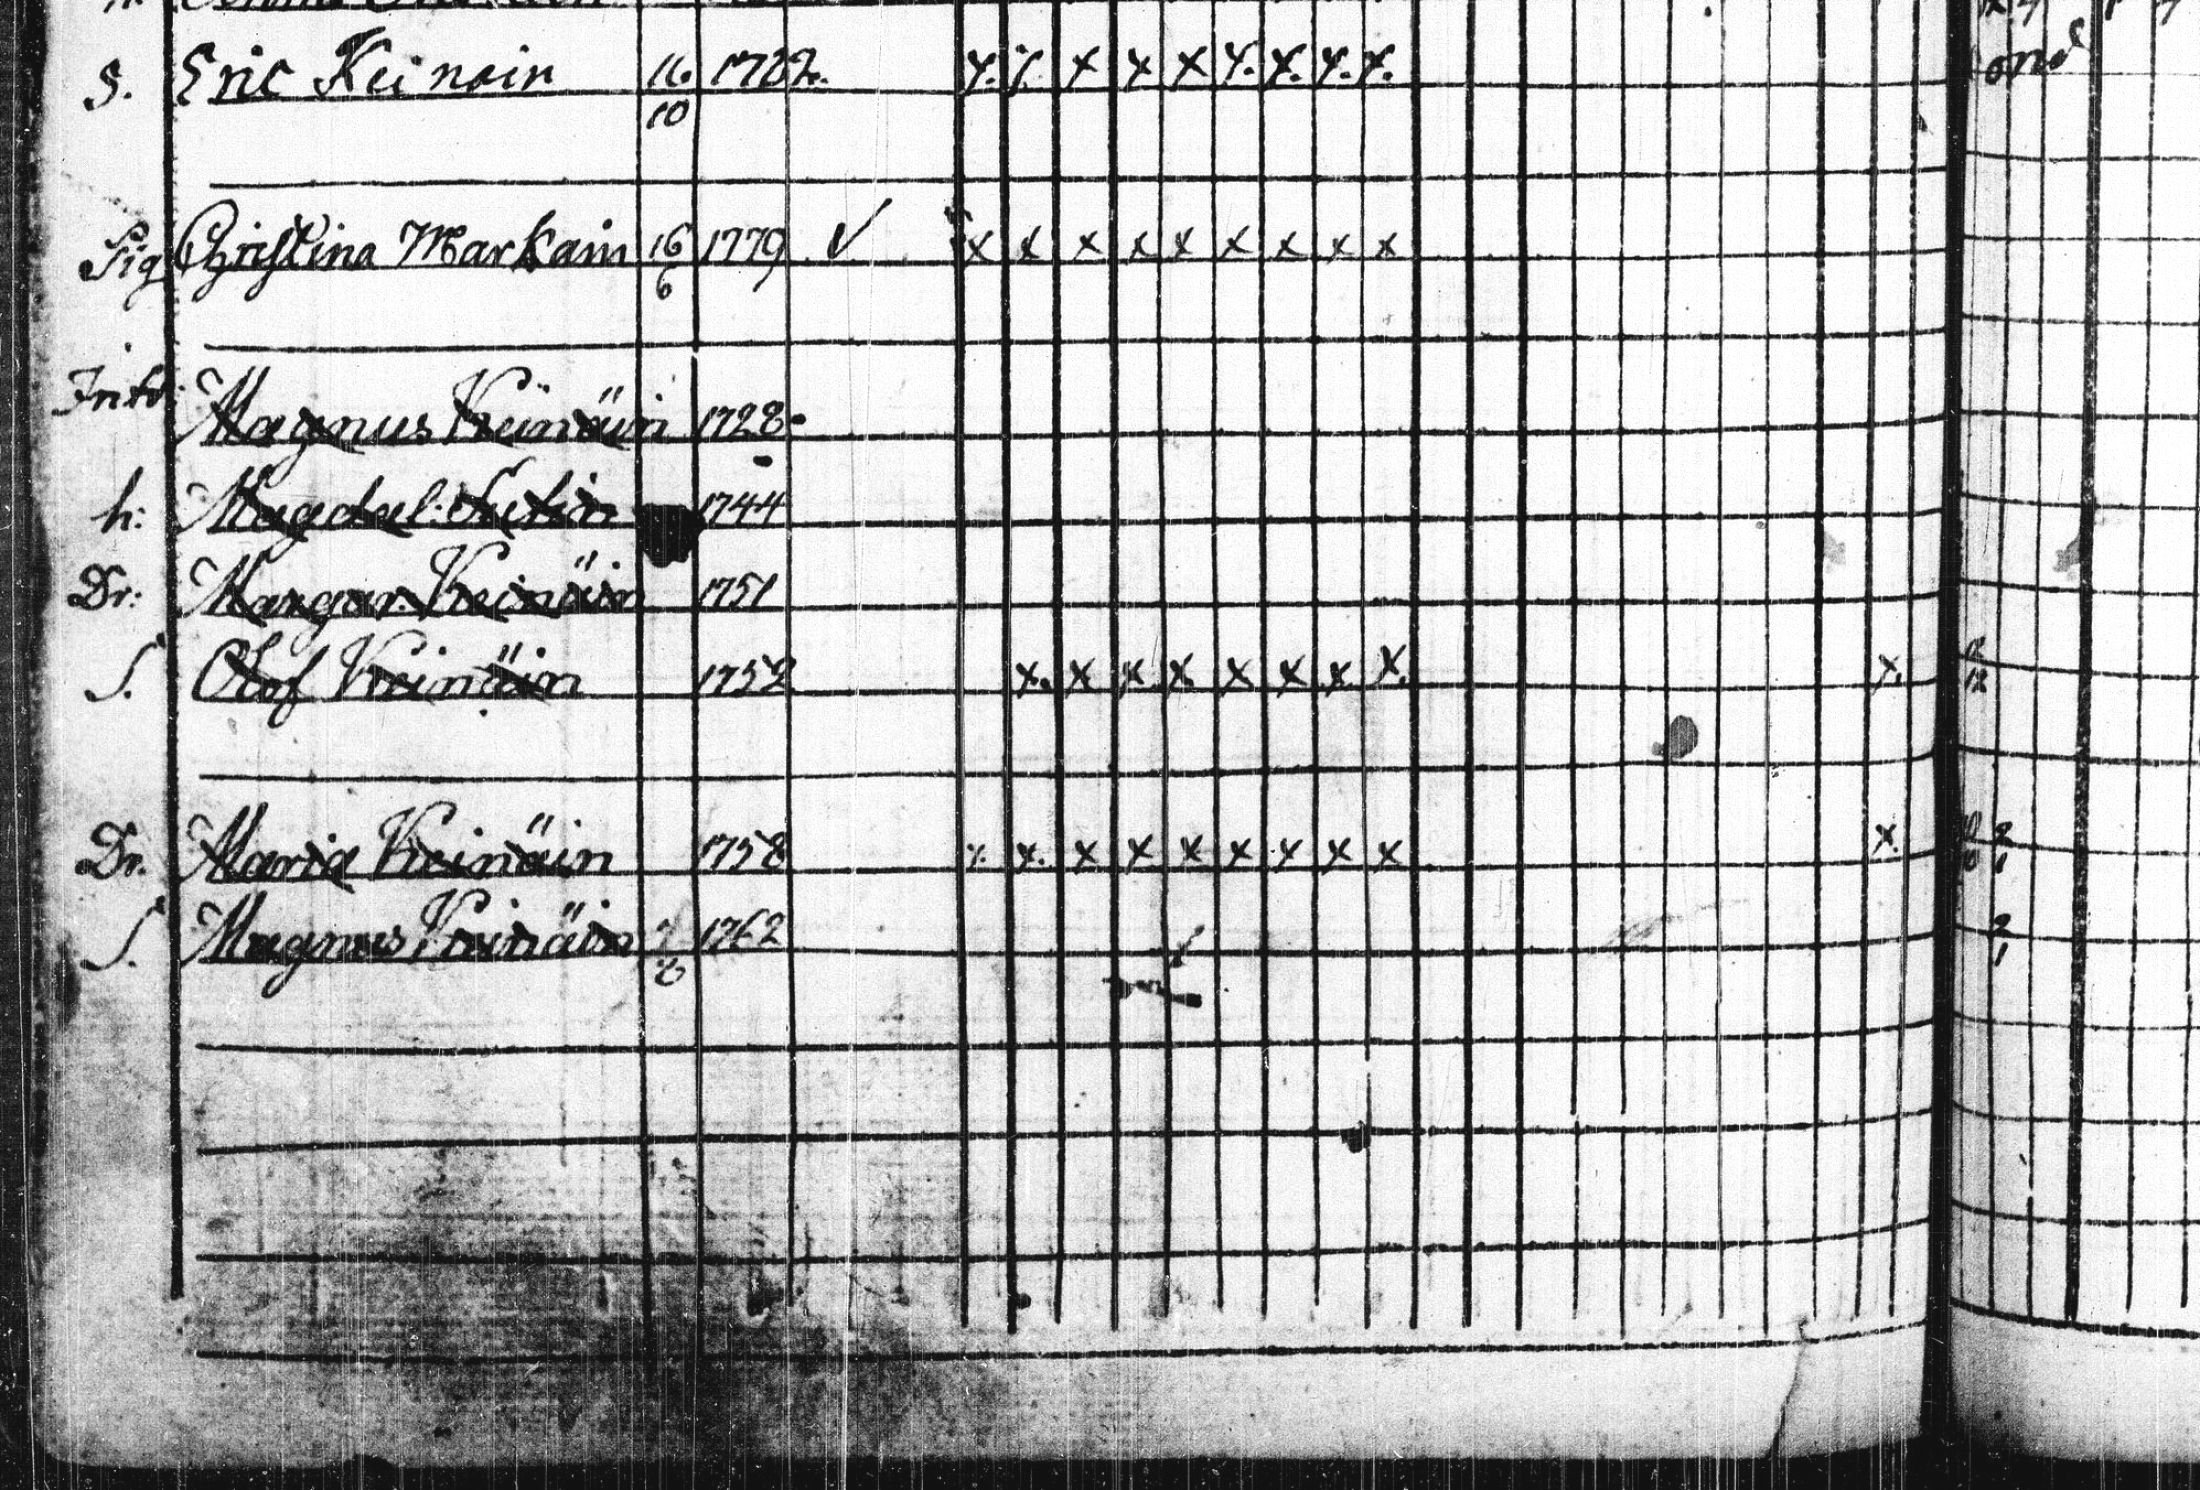 S. Eric Keinäin 16. 1782. x. x. x x x x. x. x. x. ond
10
Sig Christina Markain 16 1779 x x x x x x x x x
6
Magnus Keinäin 1728.
h: Magdal: 1744
Dr: Margar. Keinäin 1751
S. Olof Keinäin 1752 x. x x. x x x x x. x.
12
Dr. Maria Keinäin 1758 x. x. x x. x x x x x x. 10 2
10 1
S. Magnus Keinäin 1762 2
1